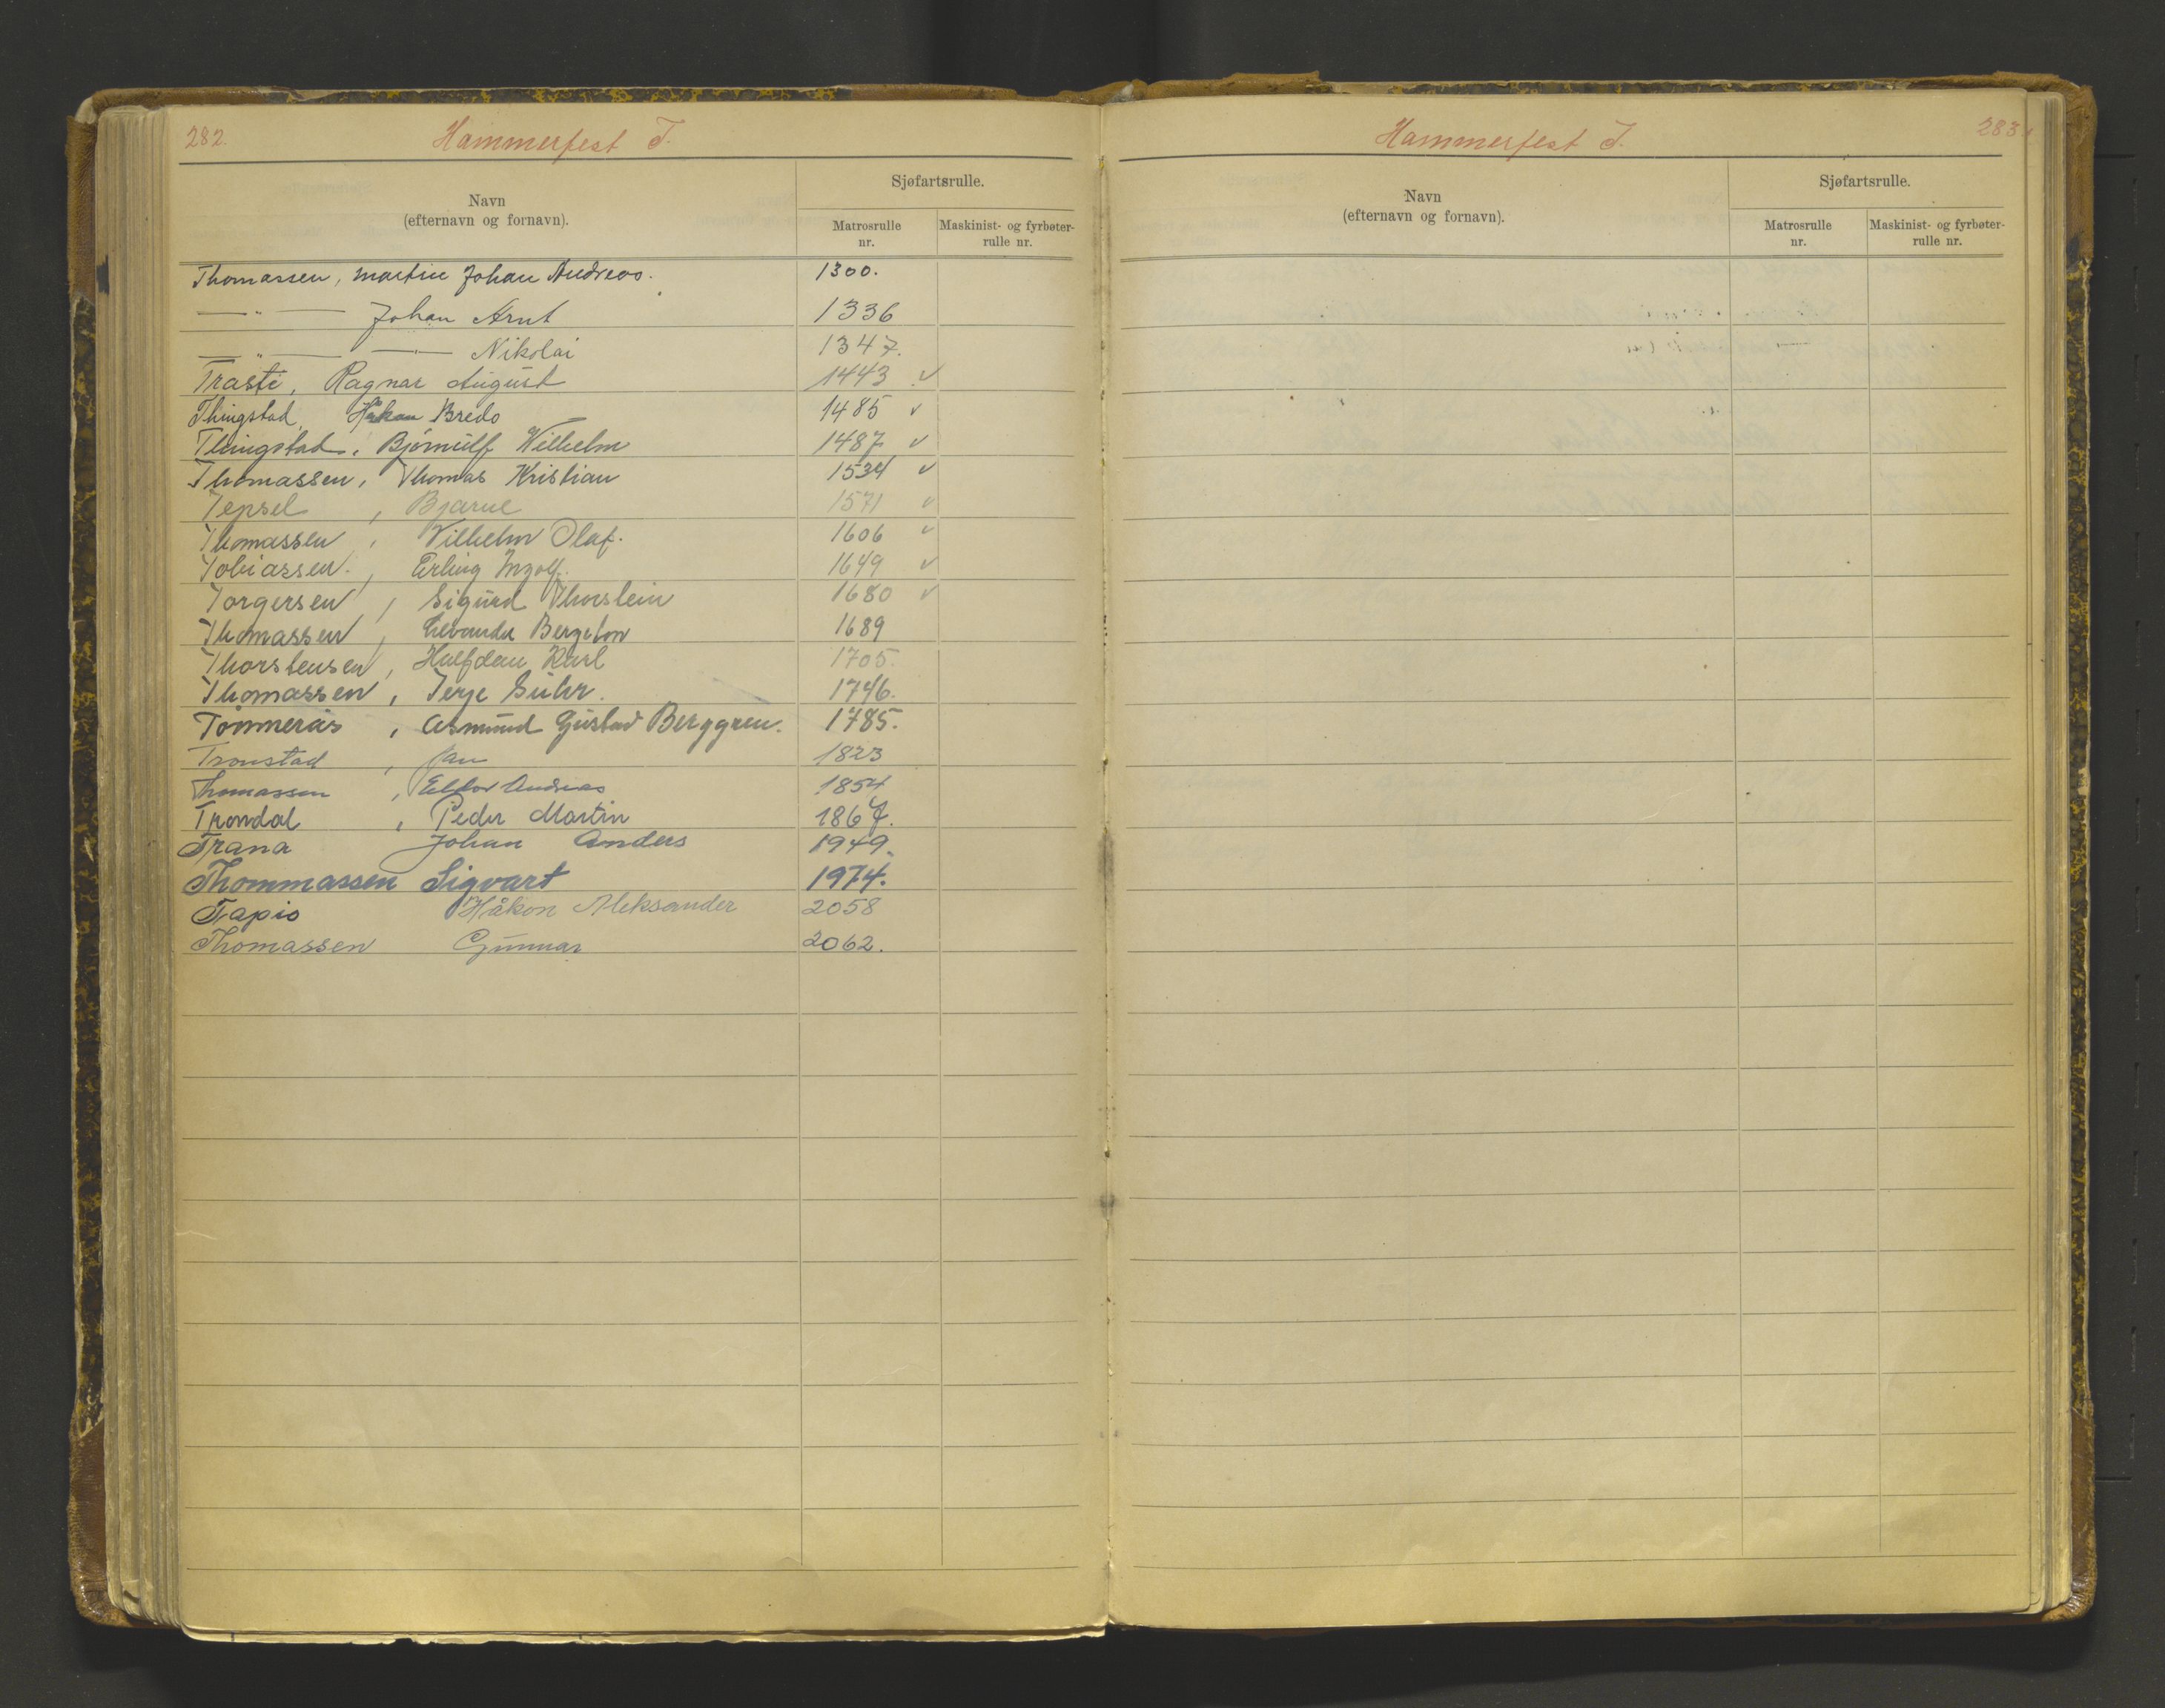 282.
Hammerfest T.
Navn
(efternavn og fornavn).
Sjøfartsrulle.
Matrosrulle
nr.
Maskinist- og fyrbøter-
rulle nr.
Thomassen, Martin Johan Andreas. 1300.
—"— Johan Arnt 1336
—"— —"— Nikolai 1347.
Trasti, Ragnar August 1443 ✓
Thingstad, Håkon Bredo 1485 ✓
Thingstad, Bjørnulf Wilhelm 1487 ✓
Thomassen, Thomas Kristian 1534 ✓
Tepsel, Bjarne 1571 ✓
Thomassen, Vilhelm Olaf. 1606 ✓
Tobiassen, Erling Ingolf. 1649 ✓
Torgersen, Sigurd Thorstein 1680 ✓
Thomassen, Bergeton 1689
Thorstensen, Halfdan Karl 1705.
Thomassen, Terje Suhr. 1746.
Tømmerås, Asmund Gustav Berggren. 1785.
Tronstad, Jan 1823
Thomassen, Andreas 1854
Trondal, Peder Martin 1867.
Trana Johan Anders 1949.
Thommassen Sigvart 1974.
Tapio Håkon Aleksander 2058
Thomassen Gunnar 2062.
Hammerfest T.
283.
Navn
(efternavn og fornavn).
Sjøfartsrulle.
Matrosrulle
nr.
Maskinist- og fyrbøter-
rulle nr.